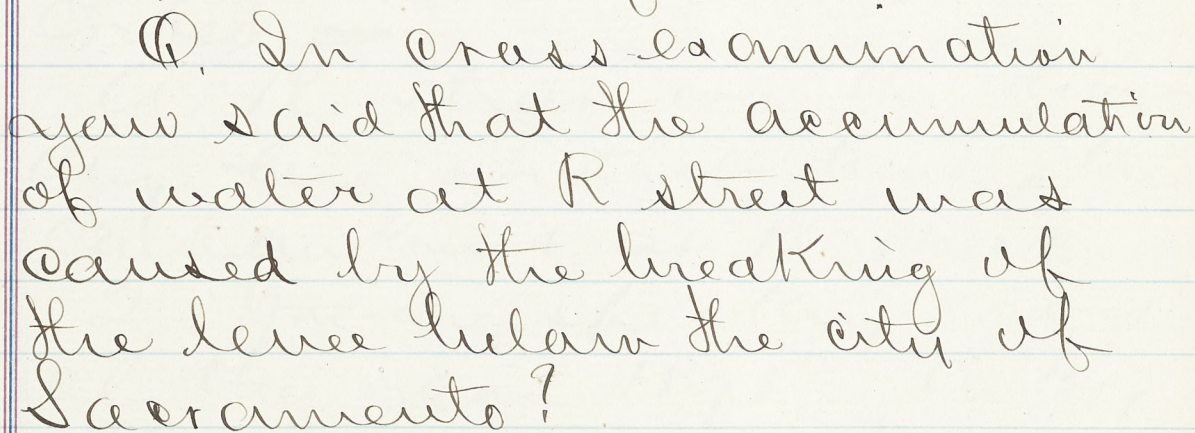 Q. In cross examination
you said that the accumulation
of water at R street was
caused by the breaking of
the levee below the city of
Sacramento?